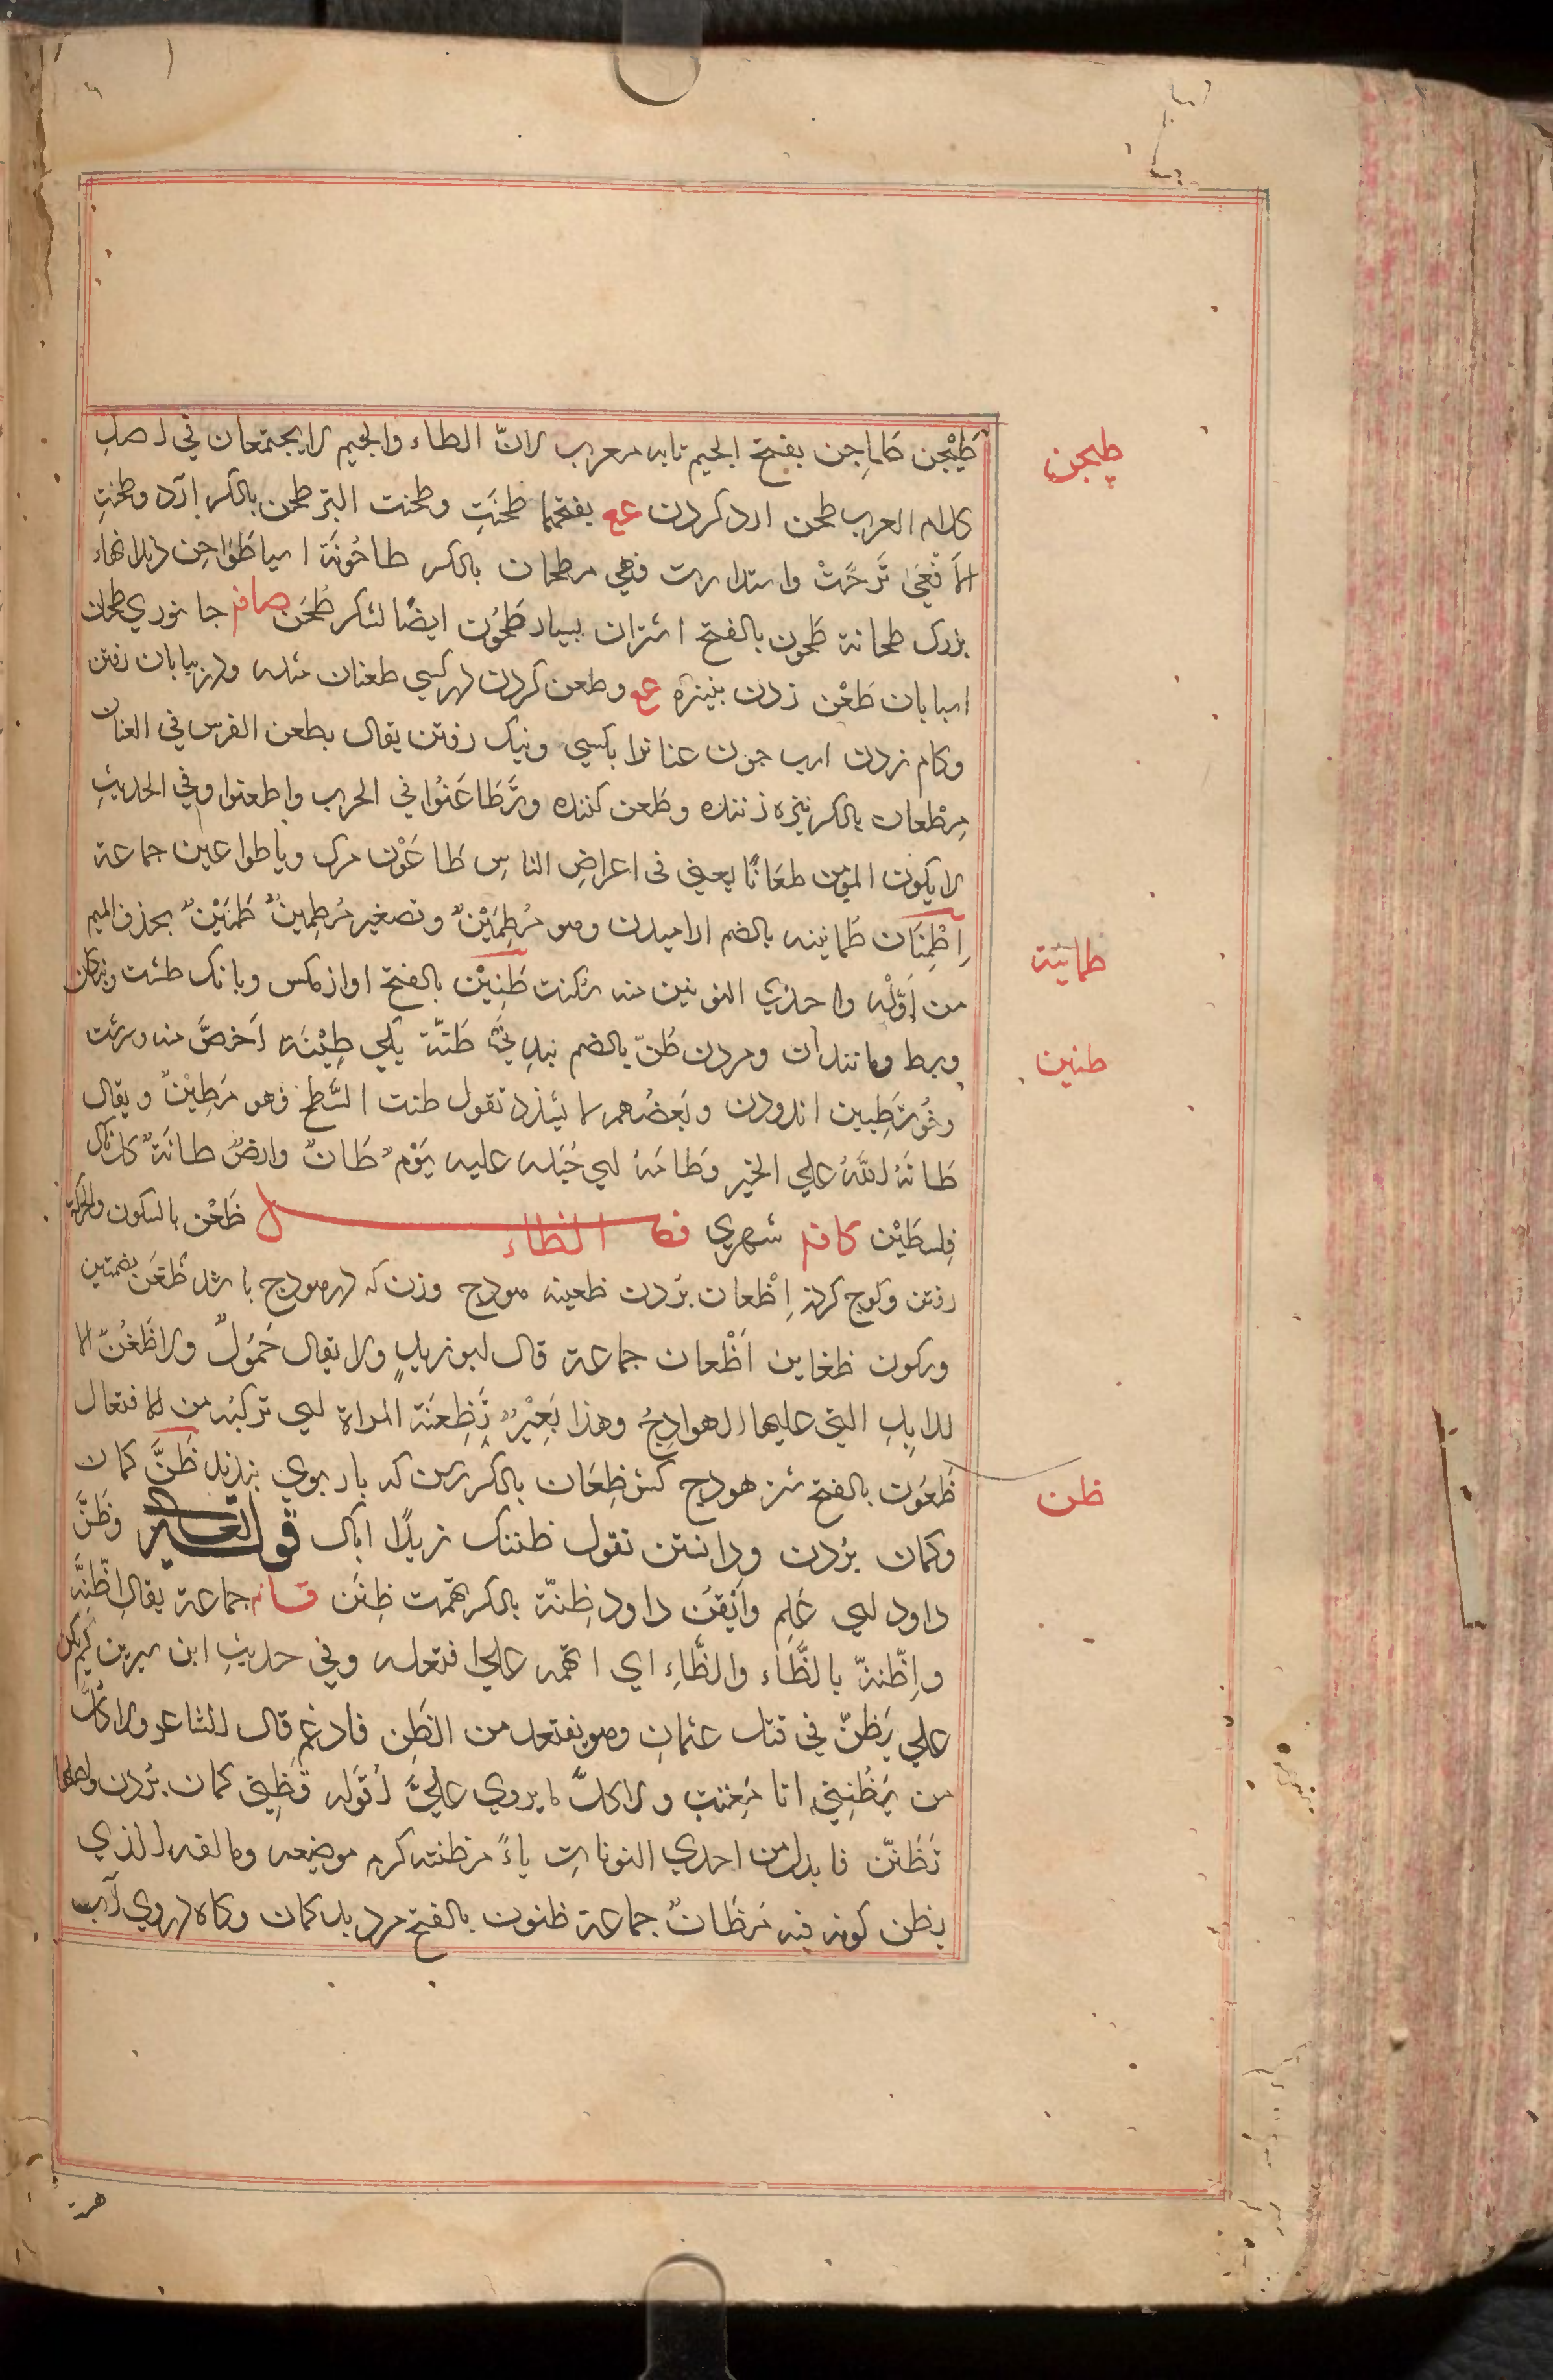 طَيْجن طَاجِن بفتح الجيم تابه معرب لانّ الطاء والجيم لا يجتمعان في اصل
طيجن
كلام العرب طحن ارد كردن عع بفتحها طحنَتِ وطحنت البّر طحن بالكسر ارد وطحنتِ
الاَفْعَى تَرَحَّتْ واستدارت فهي مطحان بالكسر طاحُونَة اسيا طَوَاحِن
بزرك طحانة طَحون بالفتح اشتران بسيار طَحُون ايضًا لشكر طُحَن صافـ جانوري طحان
اسيابان طَعْن زدن بنيزه عع وطعن كردن در كسي طعنان مثله ودر بيابان رفتن
وكام زدن اسب چون عنانرا بكسي ونيك رفتن يقال يطعن الفرس في العنان
مِطْعان بالكسر نيزه زننده وطعن كننده وتَطَاعَنُوا في الحرب واطعنوا وفي الحديثِ
لا يكون المؤمن طعَانًا يعني في اعراضِ الناسِ طَاعَوْن مرك وباطواعين جماعة
اِطْمِنَان طُمانينه بالضم اراميدن وهو مُطمَئِنٌّ وتصغير مُطمئِنٌّ طَمَيْنٌ بحذف الميم
طمانينة
من اوّله واحدي النونين منه طَنِيْن بالفتح اواز مكس وبانك طشت
وبربط ومانند آن ومردن طُنّ بالضم طنَّة يكي طِيْنَة اَخَصَّ منه وسرشت
طنين
وخُو تَطِيين اندودن وبَعضُهم تقول طنت السَّطح فهو مَطِيْنٌ ويقال
طَانَهُ اللهُ علي الخير وطَامَهُ اي جَبَله عليه يَوْمٌ طَانٌ وارضٌ طانَةٌ
فِلسطَيْن كافـ شهري فصل الظاء ظَعْن بالسكون والحركة
رفتن وكوچ كردن اِظْعان بردن ظعينه هودج وزن كه در هودج باشد ظُعَن بضمتين
وسكون ظغاين اَظْعان جماعة قال ابو زيدٍ ولا يقال حَمُولٌ ولا ظُعُنٌ الا
للابِلِ التي عليها الهوادِجُ وهذا بَعِيْرٌ تَظِعنَهُ المراة اي تركبُه من الافتعال
ظَعُون بالفتح شتر هودج كش ظِعَان بالكسر رسن كه بار بوي بندند ظَنَّ كمان
ظن
وكمان بردن ودانستن تقول ظننتك زيدًا اياك قوله تعالى وظَنَّ
داود اي عَلِم واَيْقَنَ داود ظِنّة بالكسر تهمت ظِنَن قافـ جماعة يقال اظّنَّه
واِظّننّ بالطَّاءِ والظَّاءِ اي اتهمه علي افتعله وفي حديثِ ابن سيرين لَم يكن
علي يَظنّ في قتل عثمان وهو يفتعل من الظن فادغم قال الشاعر ولا كلّ
من يَظُنِنّي انا مُعْتب ولا كلّ ما يروي عليَّ اَقوله تظِنّي كمان بُردن واصلها
تَظَنّن فابدل من احدي النونات ياءً مظنته كرم موضعه ومالفه الذي
يظن كونه فيه مَظَانٌ جماعة ظنون بالفتح مرد بدكمان وچاه در وي آب